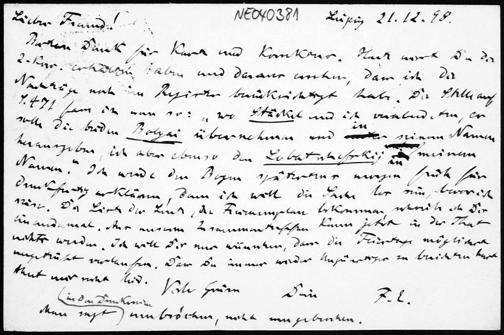 NE040381
Lieber Freund! Leipzig 21.12.98.
Besten Dank für Karte und Korrektur. Heut wirst Du die
2. Korr. erhalten haben und daraus ersehen, dass ich die
Nachträge noch im Register berücksichtigt habe. Die Stelle auf
S. 471 fasse ich nun so: "wo Stäckel und ich verabredeten, er
solle die beiden Bolyai übernehmen und unter seinem Namen
herausgeben, ich aber ebenso den Lobatschefskij unter meinem
Namen." Ich werde den Bogen spätestens morgen früh für
druckfertig erklären, denn ich will die Sache los sein, bevor ich
reise. Die Liste der Leute, die Freiexemplare bekommen, schreib ich Dir
ein andermal. Aus unserem Zusammentreffen kann jetzt in der That
nichts werden. Ich will Dir nur wünschen, dass die Feiertage möglichst
ungetrübt verlaufen. Dass Du immer wieder Ungünstiges zu berichten hast
thut mir recht leid. Viele Grüsse Dein F. E.
(in den Druckereien)
Man sagt umbrochen, nicht umgebrochen.